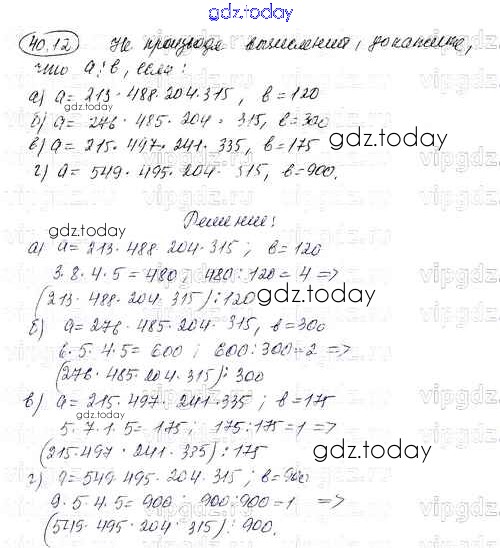 gdz.today
40.12 Не производя вычислений, докажите,
что a ⋮ b, если:
а) a = 213 · 488 · 204 · 315, b = 120
gdz.today
б) a = 276 · 485 · 204 · 315, b = 300
gdz.today
в) a = 215 · 497 · 241 · 335, b = 175
г) a = 549 · 495 · 204 · 315, b = 900.
gdz.today
Решение:
а) a = 213 · 488 · 204 · 315; b = 120
3 · 8 · 4 · 5 = 480; 480 : 120 = 4 =>
(213 · 488 · 204 · 315) ⋮ 120
gdz.today
б) a = 276 · 485 · 204 · 315, b = 300
6 · 5 · 4 · 5 = 600; 600 : 300 = 2 =>
(276 · 485 · 204 · 315) ⋮ 300
в) a = 215 · 497 · 241 · 335; b = 175
gdz.today
5 · 7 · 1 · 5 = 175; 175 : 175 = 1 =>
(215 · 497 · 241 · 335) ⋮ 175
gdz.today
г) a = 549 · 495 · 204 · 315; b = 900
9 · 5 · 4 · 5 = 900; 900 : 900 = 1 =>
(549 · 495 · 204 · 315) ⋮ 900.
gdz.today